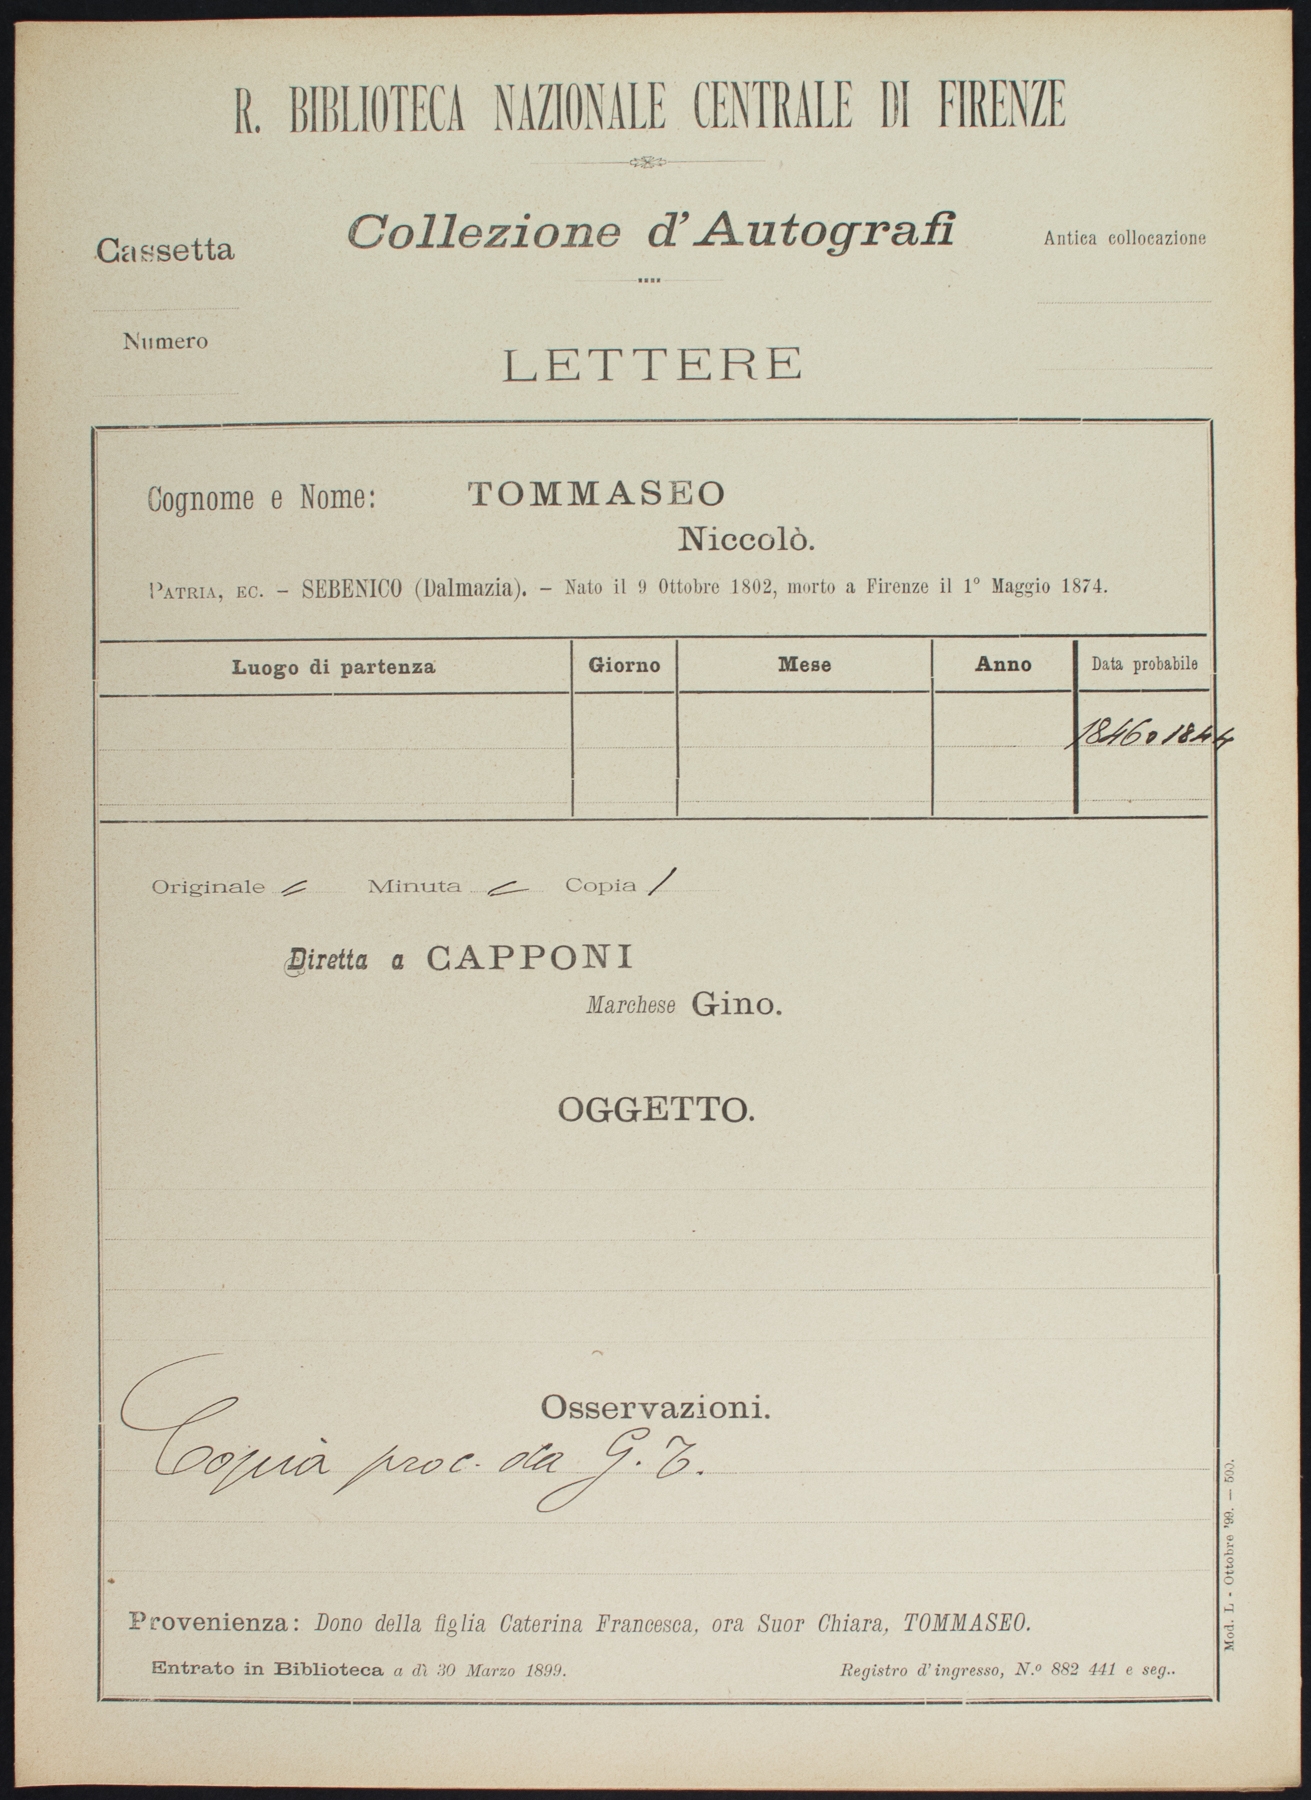 R. BIBLIOTECA NAZIONALE CENTRALE DI FIRENZE
Collezione d'Autografi
Cassetta
Antica collocazione
Numero
LETTERE
Cognome e Nome: TOMMASEO
Niccolò.
PATRIA, EC. – SEBENICO (Dalmazia). – Nato il 9 Ottobre 1802, morto a Firenze il 1º Maggio 1874.
Luogo di partenza Giorno Mese Anno Data probabile
1846 o 1844
Originale = Minuta = Copia /
Diretta a CAPPONI
Marchese Gino.
OGGETTO.
Osservazioni.
Copia proc. da G. T.
Provenienza: Dono della figlia Caterina Francesca, ora Suor Chiara, TOMMASEO.
Entrato in Biblioteca a dì 30 Marzo 1899. Registro d'ingresso, N.º 882 441 e seg..
Mod. L - Ottobre '99. — 500.